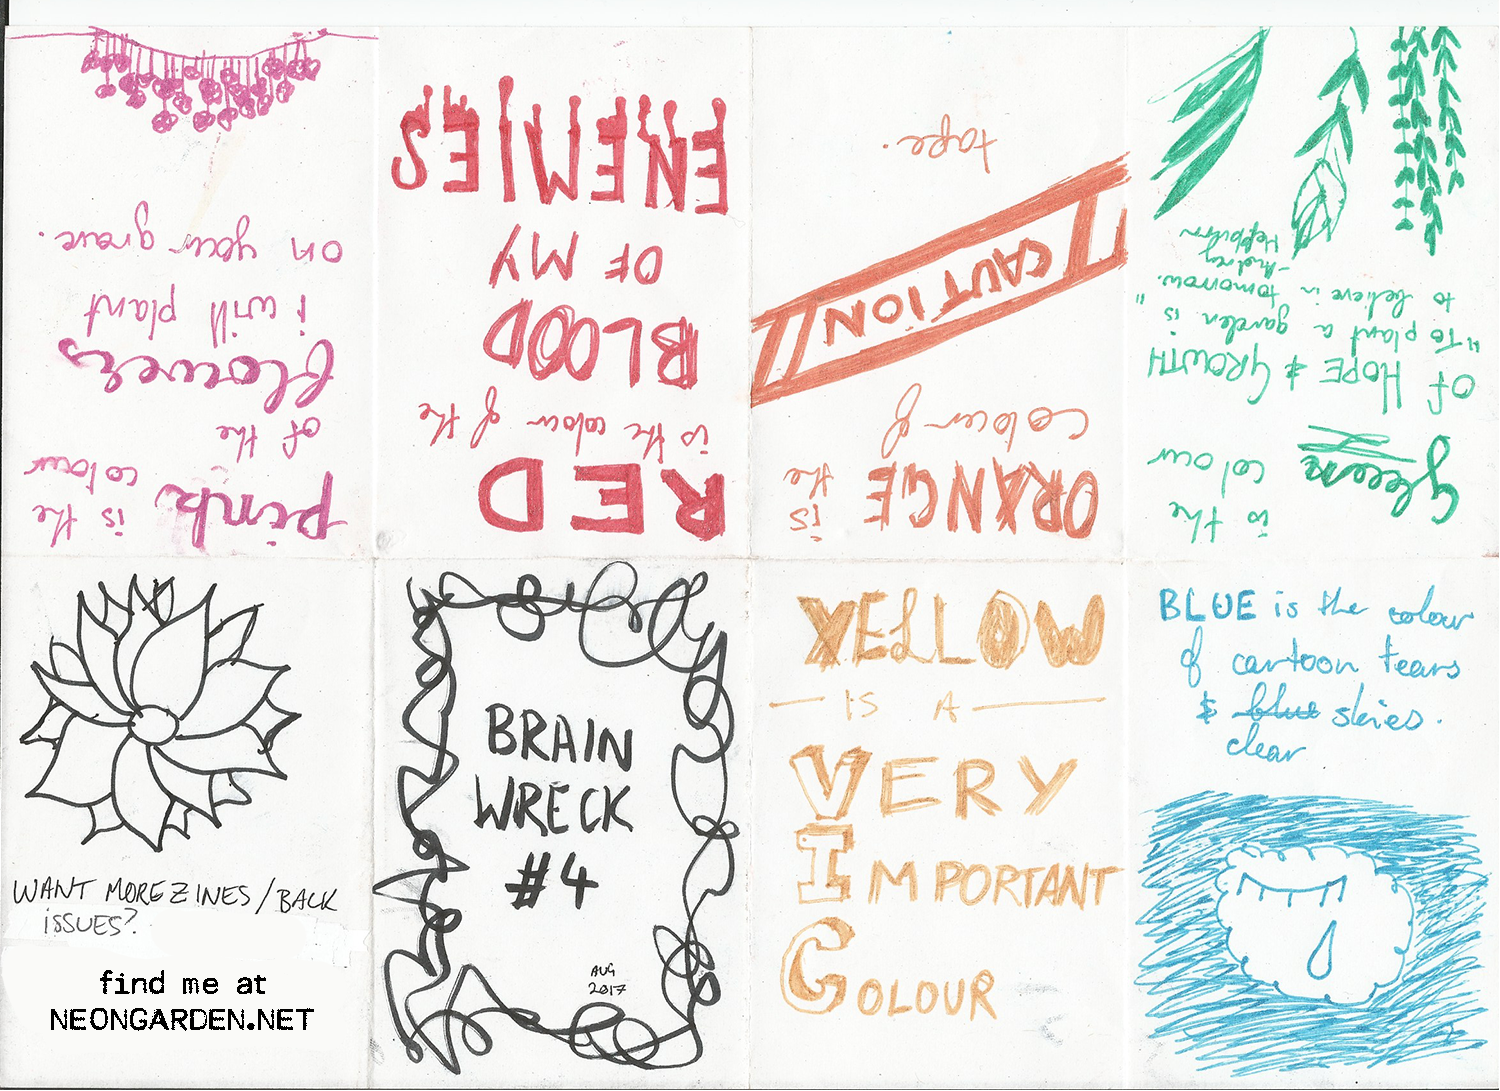 BRAIN
WRECK
#4
AUG
2017
YELLOW
IS A
VERY
IMPORTANT
COLOUR
BLUE is the colour
of cartoon tears
& blue skies.
clear
Green is the
colour
of HOPE & GROWTH
"To plant a garden is
to believe in tomorrow."
-Audrey
Hepburn
ORANGE is
the
colour of
CAUTION
tape.
RED
is the colour of the
BLOOD
OF MY
ENEMIES
pink is the
colour
of the
flowers
i will plant
on your grave.
WANT MORE ZINES/BACK
ISSUES?
find me at
NEONGARDEN.NET